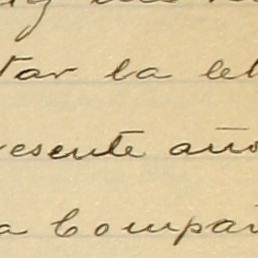 tar la let
resente año
a Compañ